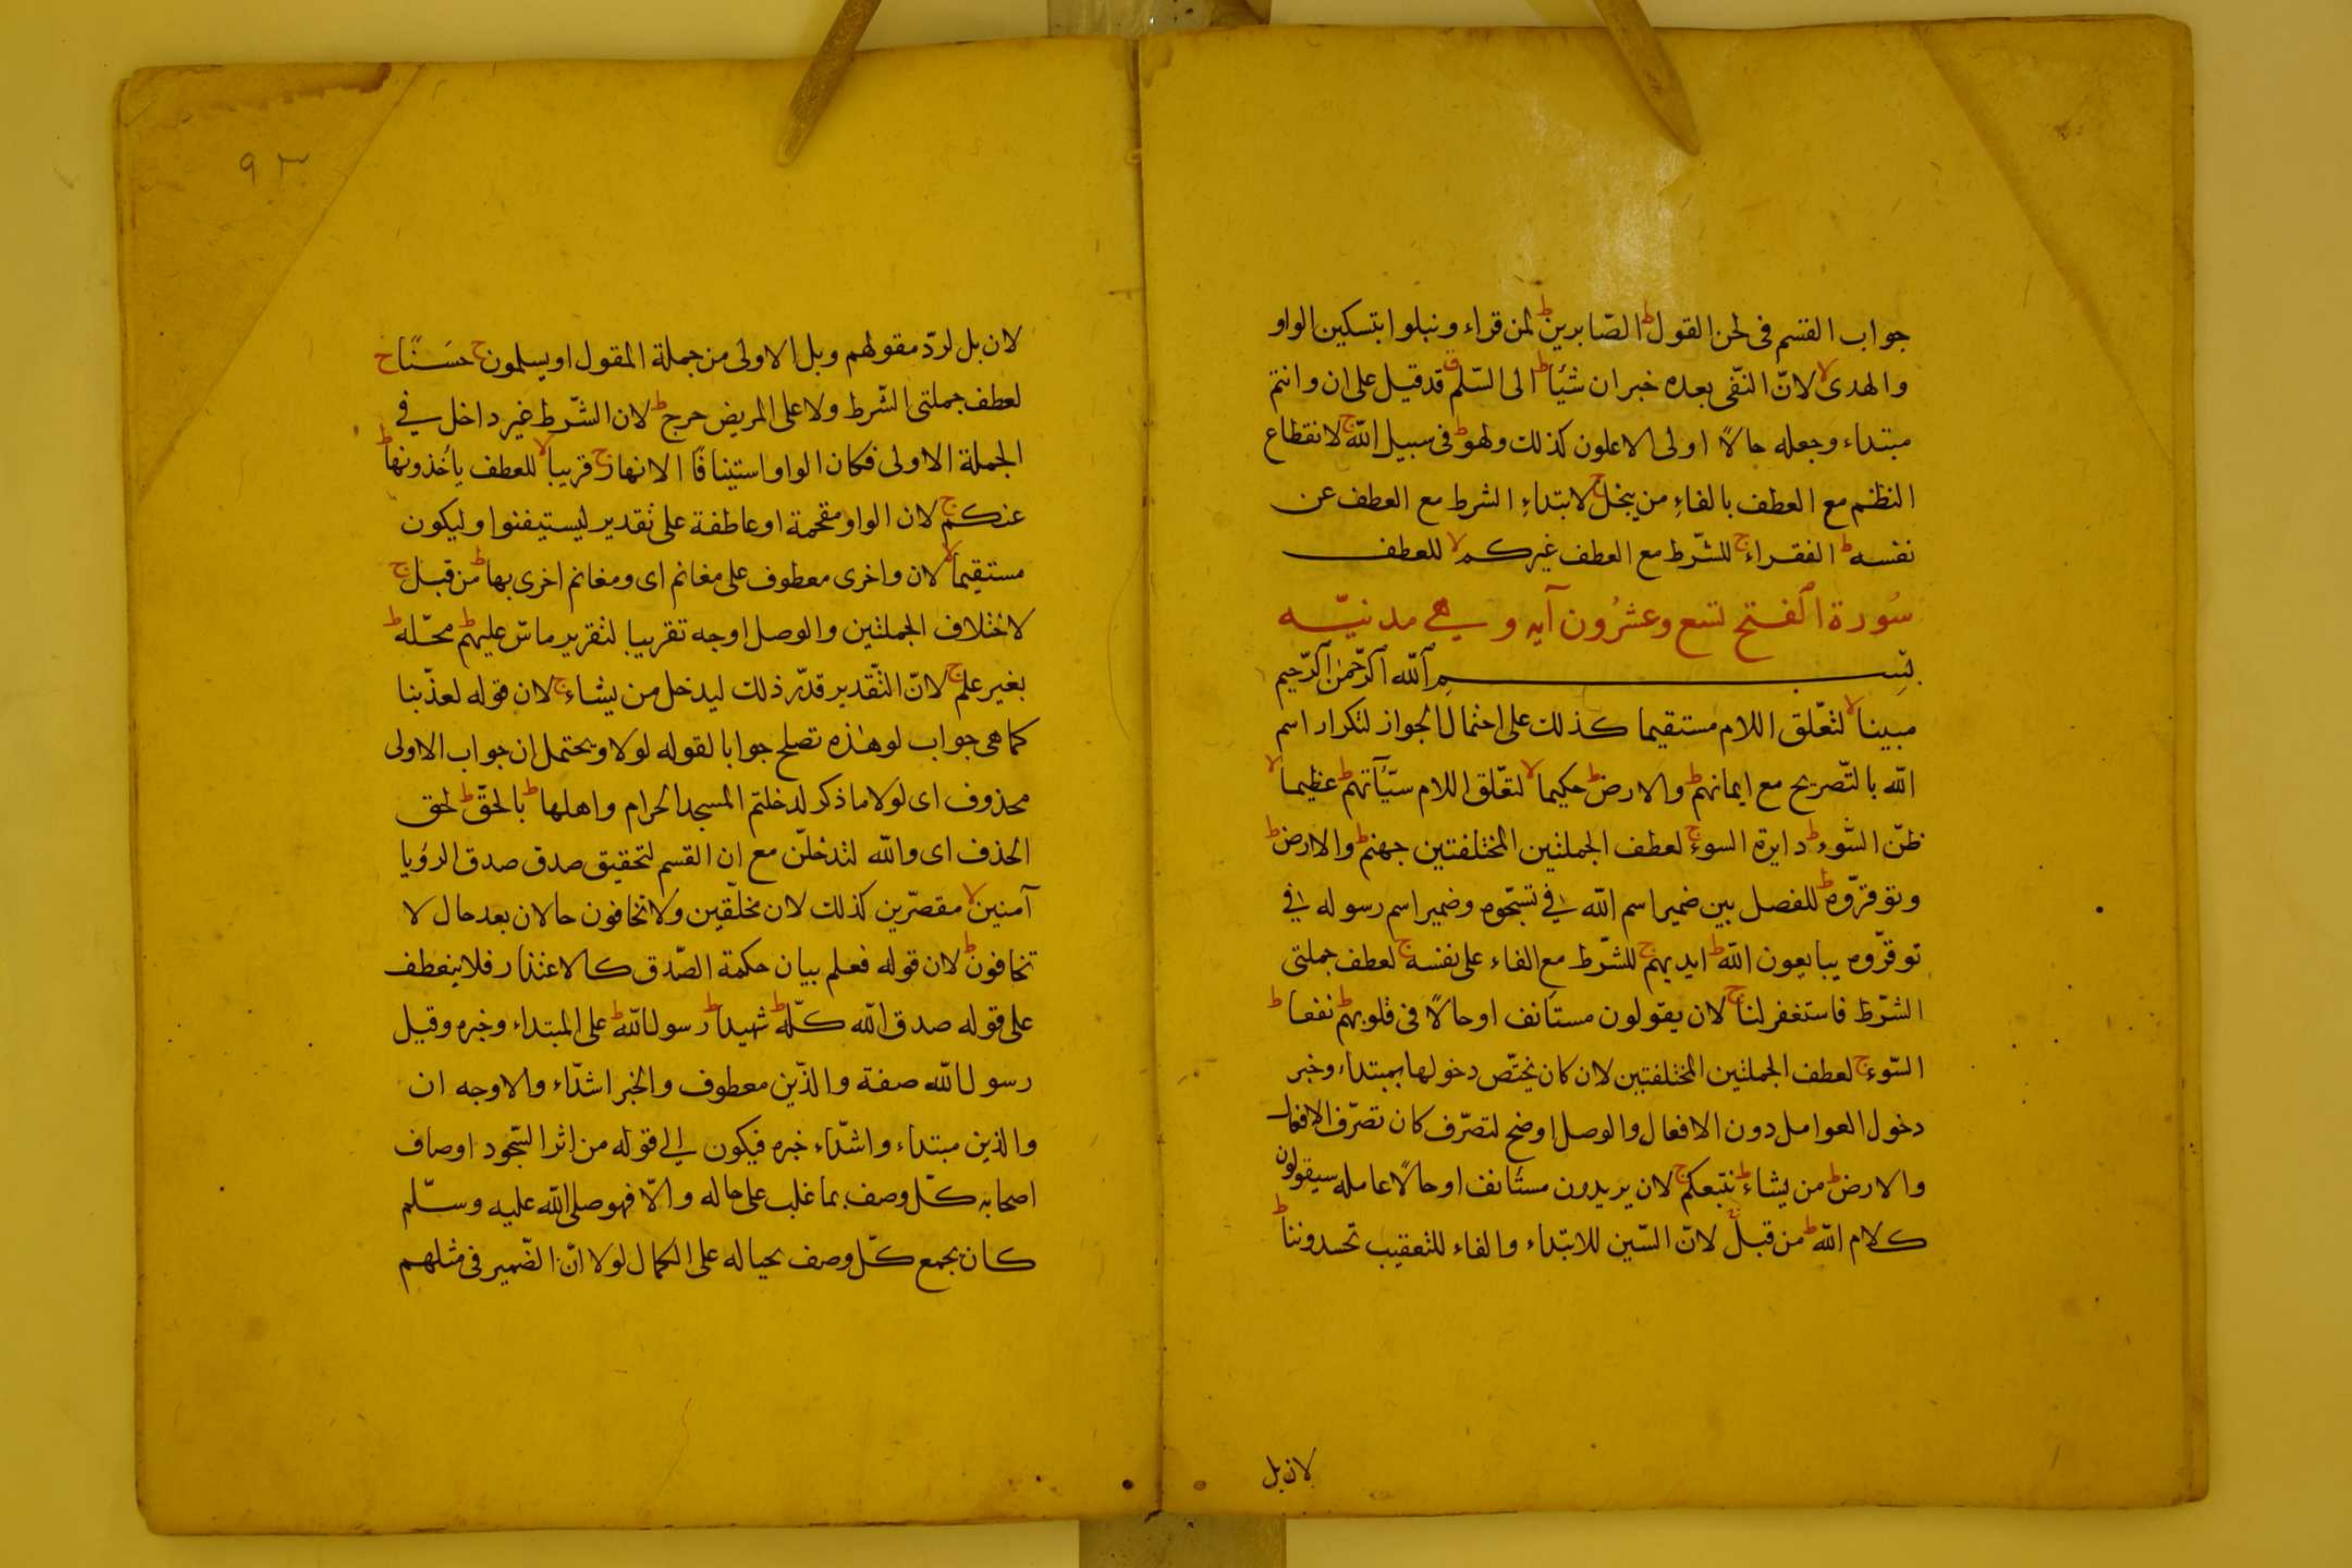 جواب القسم فى لحن القول ط الصّابرين ط لمن قراء ونبلوا بتسكين الواو
والهدى لا لانّ النّفى بعده خبر ان شئًا ط الى السّلم ق قد قيل على ان وانتم
مبتداء وجعله حالاً اولى الاعلون كذلك ولهو ط فى سبيل اللّه ج لانقطاع
النظم مع العطف بالفاءِ من يبخل ج لابتداءِ الشرط مع العطف عن
نفسه ط الفقراء ج للشّرط مع العطف غيركم لا للعطف
سُورة الفتح تسع وعشرُون آيه وهي مدنيّه
بسم اللّه الرّحمن الرّحيم
مبينا لا لتعّلق اللام مستقيما كذلك على احتمال الجواز لتكرار اسم
اللّه بالتّصريح مع ايمانهم ط والارض ط حكيما لا لتعّلق اللام سيّآتهم ط عظيما لا
ظنّ السّوء ط دايرة السوء ج لعطف الجملتين المختلفتين جهنم ط والارض ط
وتوقرّوه ط للفصل بين ضمير اسم اللّه في تسبّحوه وضمير اسم رسوله في
توقرّوه يبايعون اللّه ط ايديهم ج للشّرط مع الفاء على نفسه ج لعطف جملتى
الشّرط فاستغفر لنا ج لان يقولون مستانف اوحالاً فى قلوبهم ط نفعا ط
السّوء ج لعطف الجملتين المختلفتين لان كان يختصّ دخولها بمبتداء وخبر
دخول العوامل دون الافعال والوصل اوضح لتصرّف كان تصرّف الافعال
والارض ط من يشاء ط نتبعكم ج لان يريدون مستأنف اوحالاً عامله سيقولون
كلام اللّه ط من قبل ج لانّ السّين للابتداء والفاء للتعقيب تحسدوننا ط
لان بل
٩٣
لان بل لردّ مقولهم وبل الاولى من جملة المقول اويسلمون ج حسَنًا ج
لعطف جملتى الشّرط ولاعلى المريض حرج ط لان الشّرط غير داخل في
الجملة الاولى فكان الواو استينافًا الانهار ج قريبا لا للعطف يأخذونها ط
عنكم ج لان الواو مقحمة اوعاطفة على تقدير ليستيقنوا وليكون
مستقيما لا لان واخرى معطوف على مغانم اى ومغانم اخرى بها ط من قبل ج
لاختلاف الجملتين والوصل اوجه تقريبا لتقرير ماسّ عليهم ط محّله ط
بغير علم ج لانّ التّقدير قدّر ذلك ليدخل من يشاء ج لان قوله لعذّبنا
كما هى جواب لو هذه تصلح جوابا لقوله لولا ويحتمل ان جواب الاولى
محذوف اى لولا ما ذكر لدخلتم المسجد الحرام واهلها ط بالحقّ ط لحق
الحذف اى واللّه لتدخلّن مع ان القسم لتحقيق صدق صدق الرؤيا
آمنين لا مقصّرين كذلك لان مخلّقين ولا تخافون حالان بعد حال لا
تخافون ط لان قوله فعلم بيان حكمة الصّدق كالاعتذار فلا ينعطف
على قوله صدق اللّه كلّه ط شهيدا ط رسول اللّه ط على المبتداء وخبره وقيل
رسول اللّه صفة والذّين معطوف والخبر اشدّاء والاوجه ان
والذين مبتداء واشدّاء خبره فيكون الى قوله من اثر السّجود اوصاف
اصحابه كلّ وصف بما غلب على حاله والّا فهو صلى اللّه عليه وسلّم
كان يجمع كلّ وصف بحياله على الكمال لولا انّ الضّمير فى مثلهم